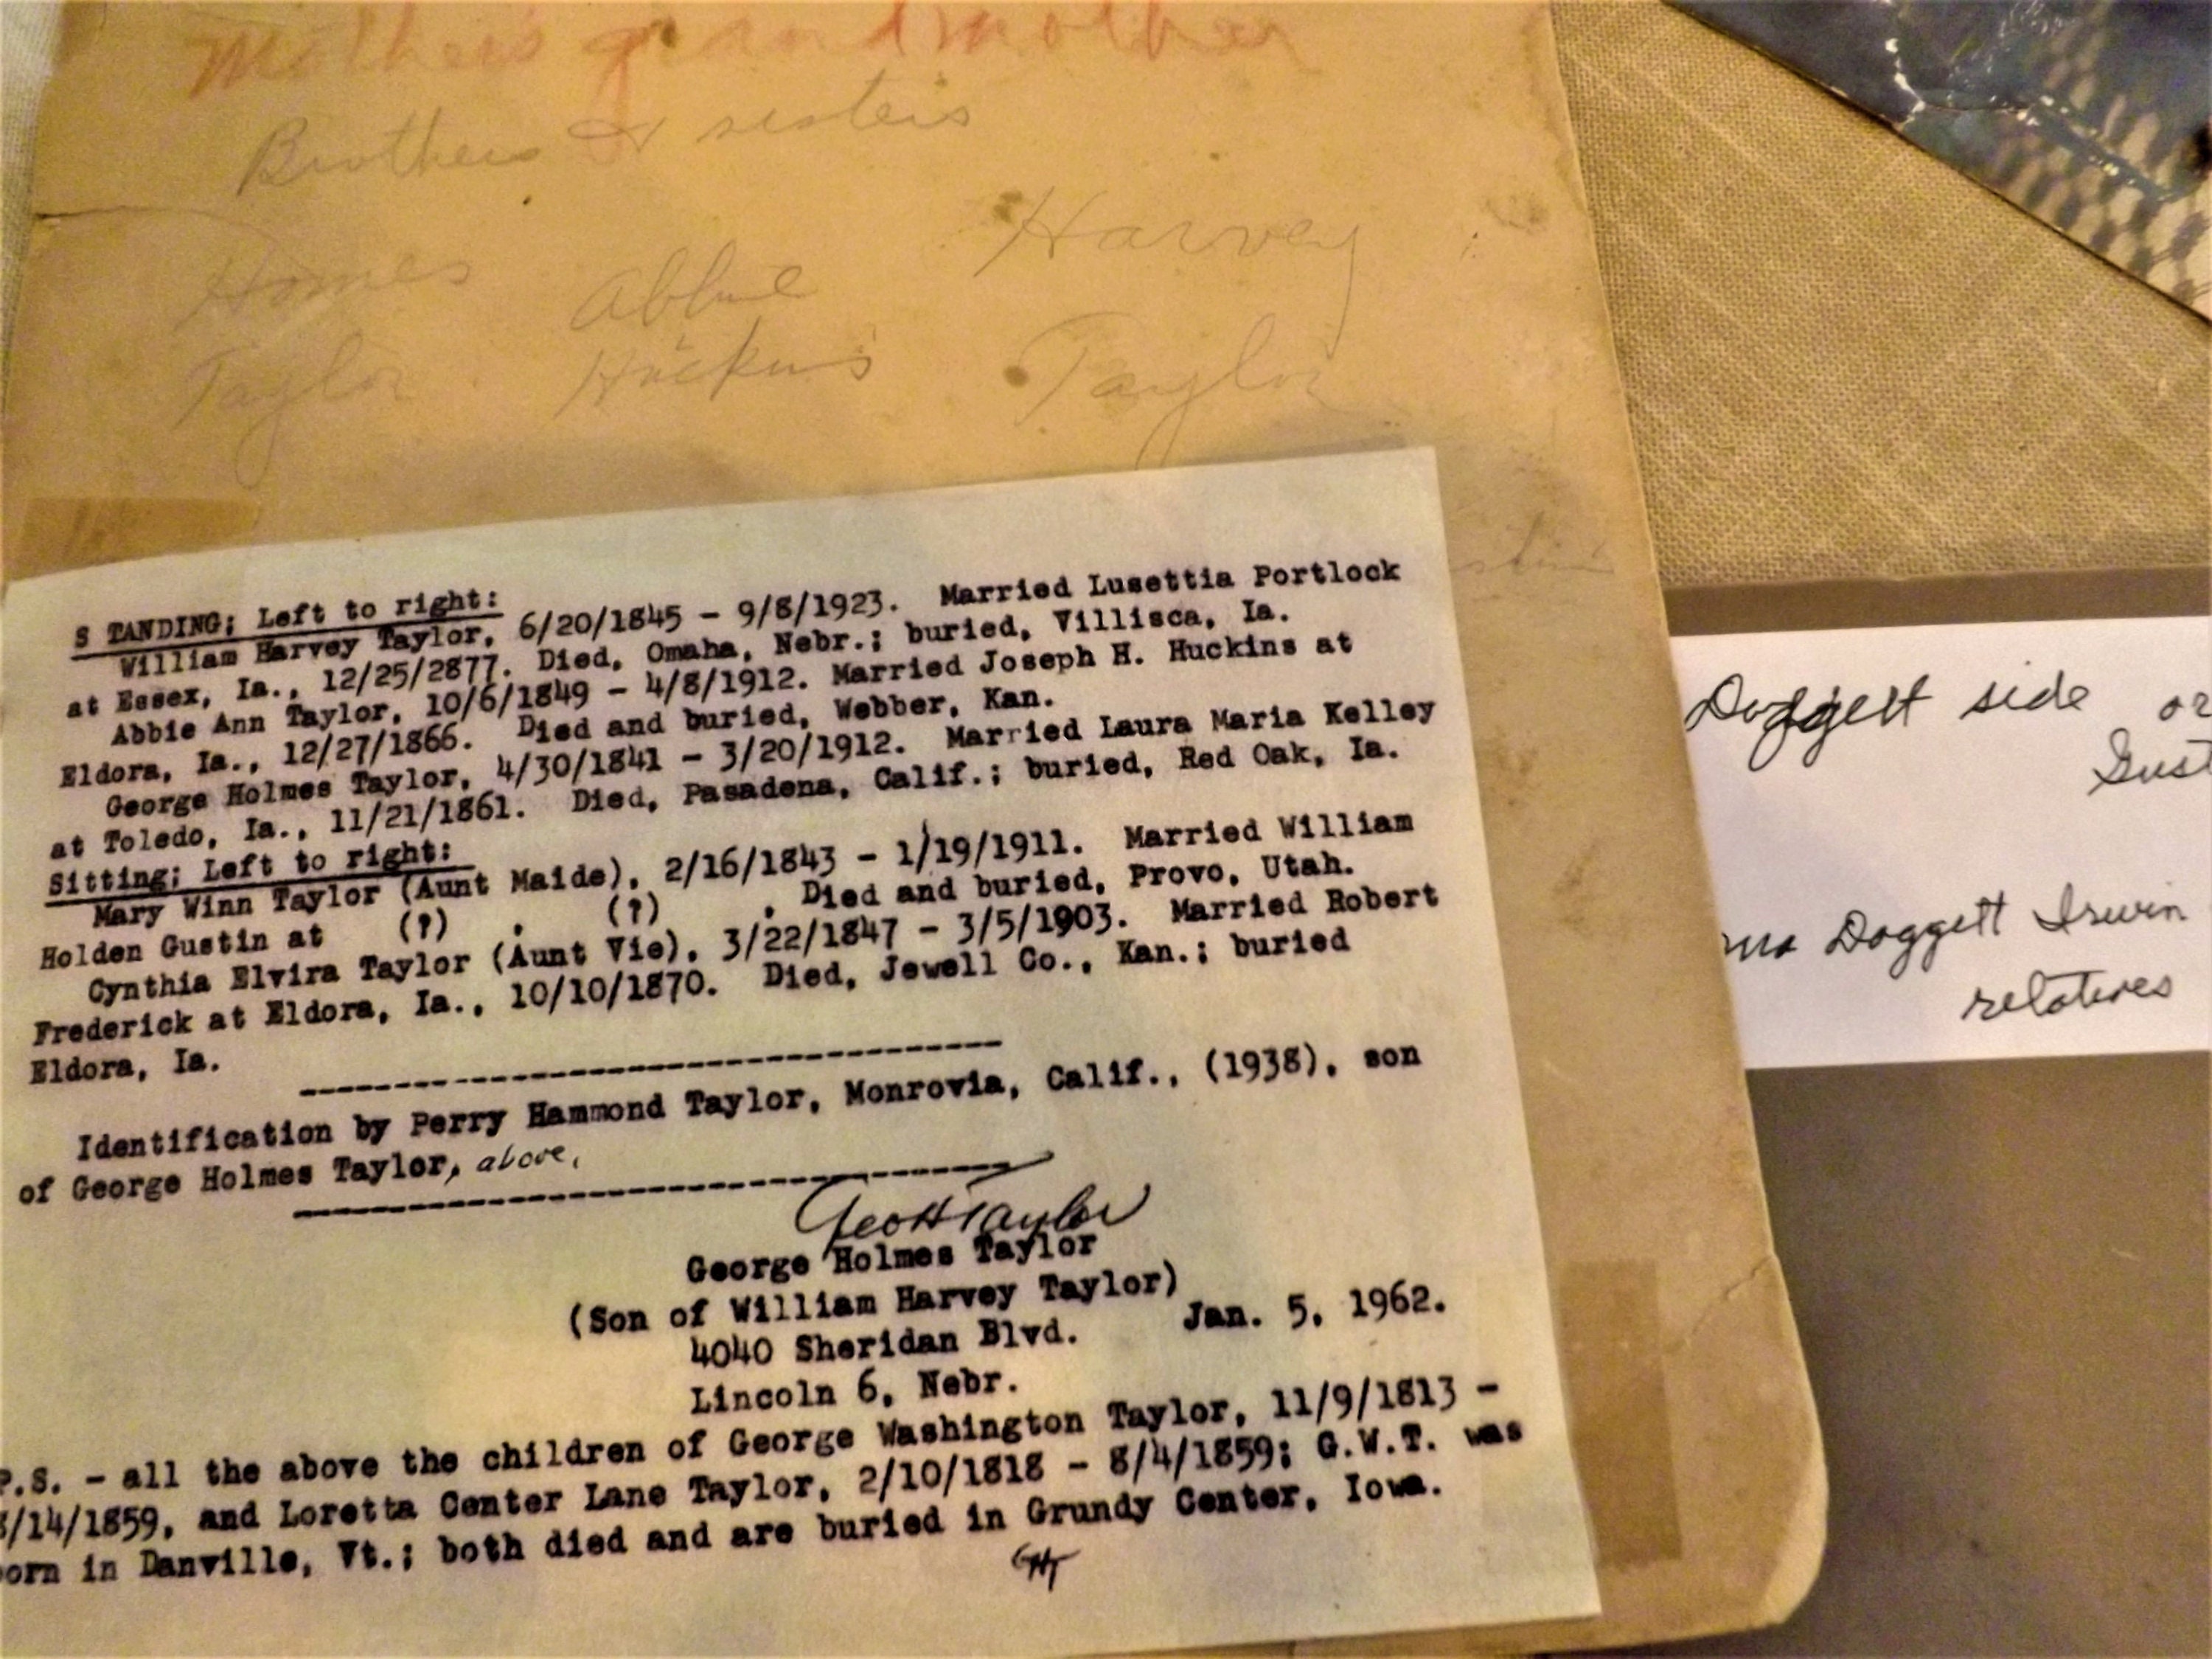 Mother's grandmother
Brothers & sisters
Homes Abbie Harvey
Taylor Huckins Taylor
S TANDING; Left to right:
William Harvey Taylor, 6/20/1845 - 9/8/1923. Married Lusettia Portlock
at Essex, Ia., 12/25/2877. Died, Omaha, Nebr.; buried, Villisca, Ia.
Abbie Ann Taylor, 10/6/1849 - 4/8/1912. Married Joseph H. Huckins at
Eldora, Ia., 12/27/1866. Died and buried, Webber, Kan.
George Holmes Taylor, 4/30/1841 - 3/20/1912. Married Laura Maria Kelley
at Toledo, Ia., 11/21/1861. Died, Pasadena, Calif.; buried, Red Oak, Ia.
Sitting; Left to right:
Mary Winn Taylor (Aunt Maide), 2/16/1843 - 1/19/1911. Married William
Holden Gustin at (?) , (?) . Died and buried, Provo, Utah.
Cynthia Elvira Taylor (Aunt Vie), 3/22/1847 - 3/5/1903. Married Robert
Frederick at Eldora, Ia., 10/10/1870. Died, Jewell Co., Kan.; buried
Eldora, Ia.
Identification by Perry Hammond Taylor, Monrovia, Calif., (1938), son
of George Holmes Taylor, above.
Geo H Taylor
George Holmes Taylor
(Son of William Harvey Taylor)
4040 Sheridan Blvd. Jan. 5, 1962.
Lincoln 6, Nebr.
P.S. - all the above the children of George Washington Taylor, 11/9/1813 -
/14/1859, and Loretta Center Lane Taylor, 2/10/1818 - 8/4/1859; G.W.T. was
born in Danville, Vt.; both died and are buried in Grundy Center, Iowa.
GHT
Doggett side or
Gust
Doggett Irwin
relatives